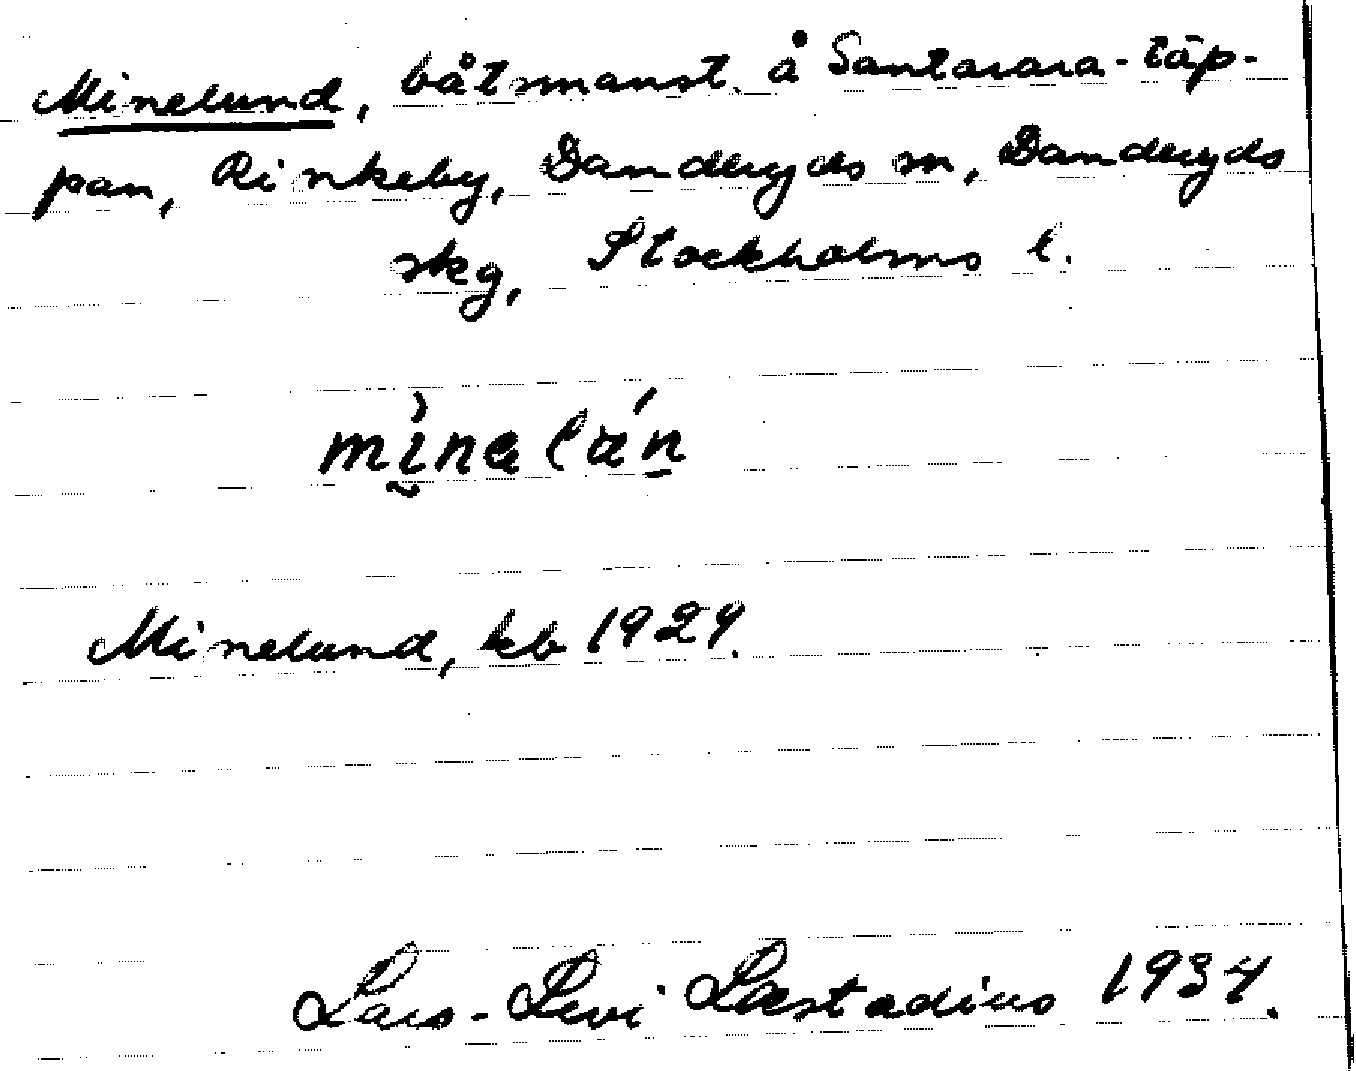 Minelund, båtmanst. å Santarara-täp-
pan, Rinkeby, Danderyds sn, Danderyds
skg, Stockholms l.
mìnelán
Minelund, kb 1929.
Lars-Levi Læstadius 1934.